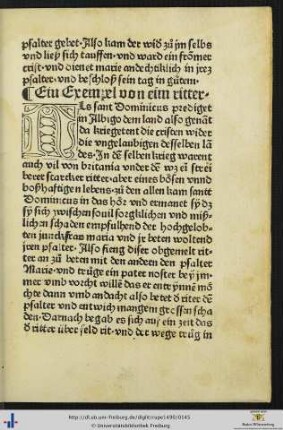 psalter gebet. Also kam der wid zů ym selbs
vnd ließ sich tauffen. vnd ward ein fromer
crist. vnd dienet marie andechtiklich in irez
psalter. vnd beschloß sein tag in gůtem.
¶ Ein Exempel von eim ritter.
Als sant Dominicus prediget
in Albigo dem land also genāt
da kriegetent die cristen wider
die vngelaubigen desselben lā
des. In dē selben krieg warent
auch vil von britania vnder dē wz eī strei
berer starcker ritter. aber eines bösen vnnd
boßhaftigen lebens. zů den allen kam sanct
Dominicus in das hör vnd ermanet sy dz
sy sich zwischen souil sorgklichen vnd miß
lichen schaden empfulhend der hochgelob
ten junckfraw maria vnd je beten woltend
jren psalter. Also fieng diser obgemelt rit
ter an zů beten mit den andern den psalter
Marie. vnd trůge ein pater noster bey jm.
mer vmb vorcht wille das er entrynnē mö
chte dann vmb andacht also betet d riter dē
psalter vnd entwich mangem grossen scha
den. Darnach begab es sich auf ein zeit das
d ritter über feld rit. vnd der wege trůg in
http://dl.ub.uni-freiburg.de/diglit/rupe1490/0045
© Universitätsbibliothek Freiburg
Baden-Württemberg